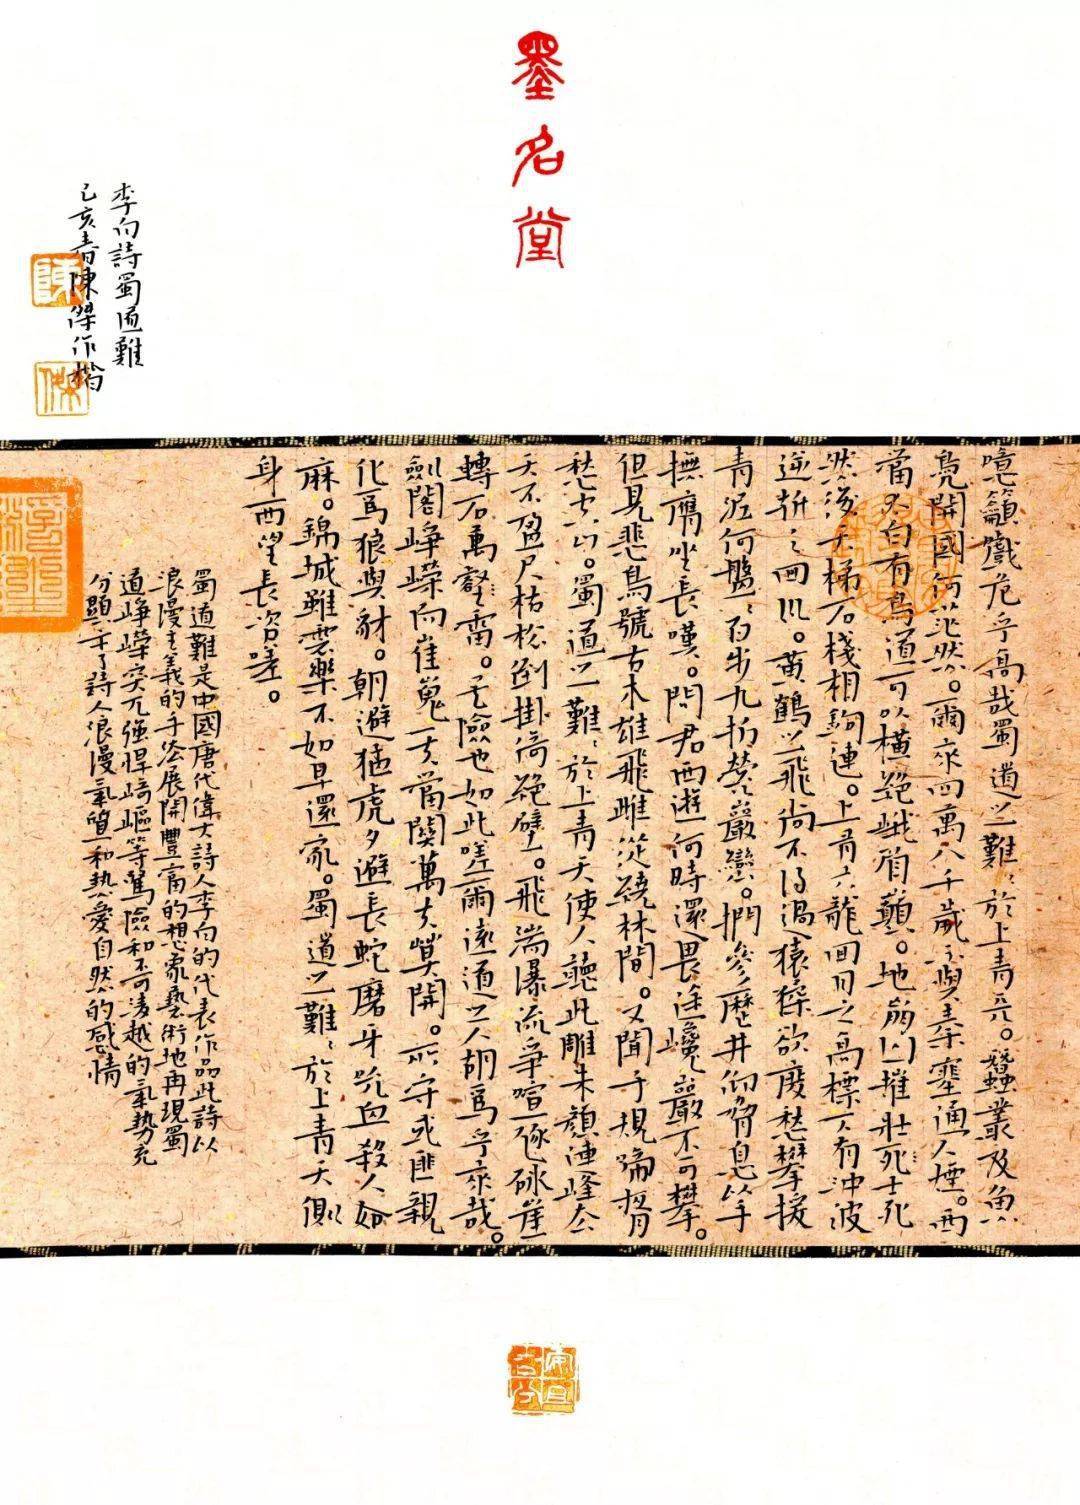 墨名堂
李白詩蜀道難
己亥春陳傑作楷
陳
傑
噫籲戲危乎高哉蜀道之難〻於上青天。蠶叢及魚
鳧開國何茫然。爾來四萬八千歲不與秦塞通人煙。西
當太白有鳥道可以橫絕峨眉巔。地崩山摧壯死士死
然後天梯石棧相鉤連。上有六龍回日之高標下有沖波
逆折之回川。黃鶴之飛尚不得過猿猱欲度愁攀援
青泥何盤〻百步九折縈巖巒。捫參歷井仰脅息以手
撫膺坐長嘆。問君西遊何時還畏途巉巖不可攀。
但見悲鳥號古木雄飛雌從繞林間。又聞子規啼夜月
愁空山。蜀道之難〻於上青天使人聽此雕朱顏連峰去
天不盈尺枯松倒掛倚絕壁。飛湍瀑流爭喧豗砯崖
轉石萬壑雷。其險也如此嗟爾遠道之人胡為乎來哉。
劍閣崢嶸而崔嵬一夫當關萬夫莫開。所守或匪親
化為狼與豺。朝避猛虎夕避長蛇磨牙吮血殺人如
麻。錦城雖雲樂不如早還家。蜀道之難〻於上青天側
身西望長咨嗟。
蜀道難是中國唐代偉大詩人李白的代表作品此詩以
浪漫主義的手法展開豐富的想象藝術地再現蜀
道崢嶸突兀強悍崎嶇等驚險和不可淩越的氣勢充
分顯示了詩人浪漫氣質和熱愛自然的感情